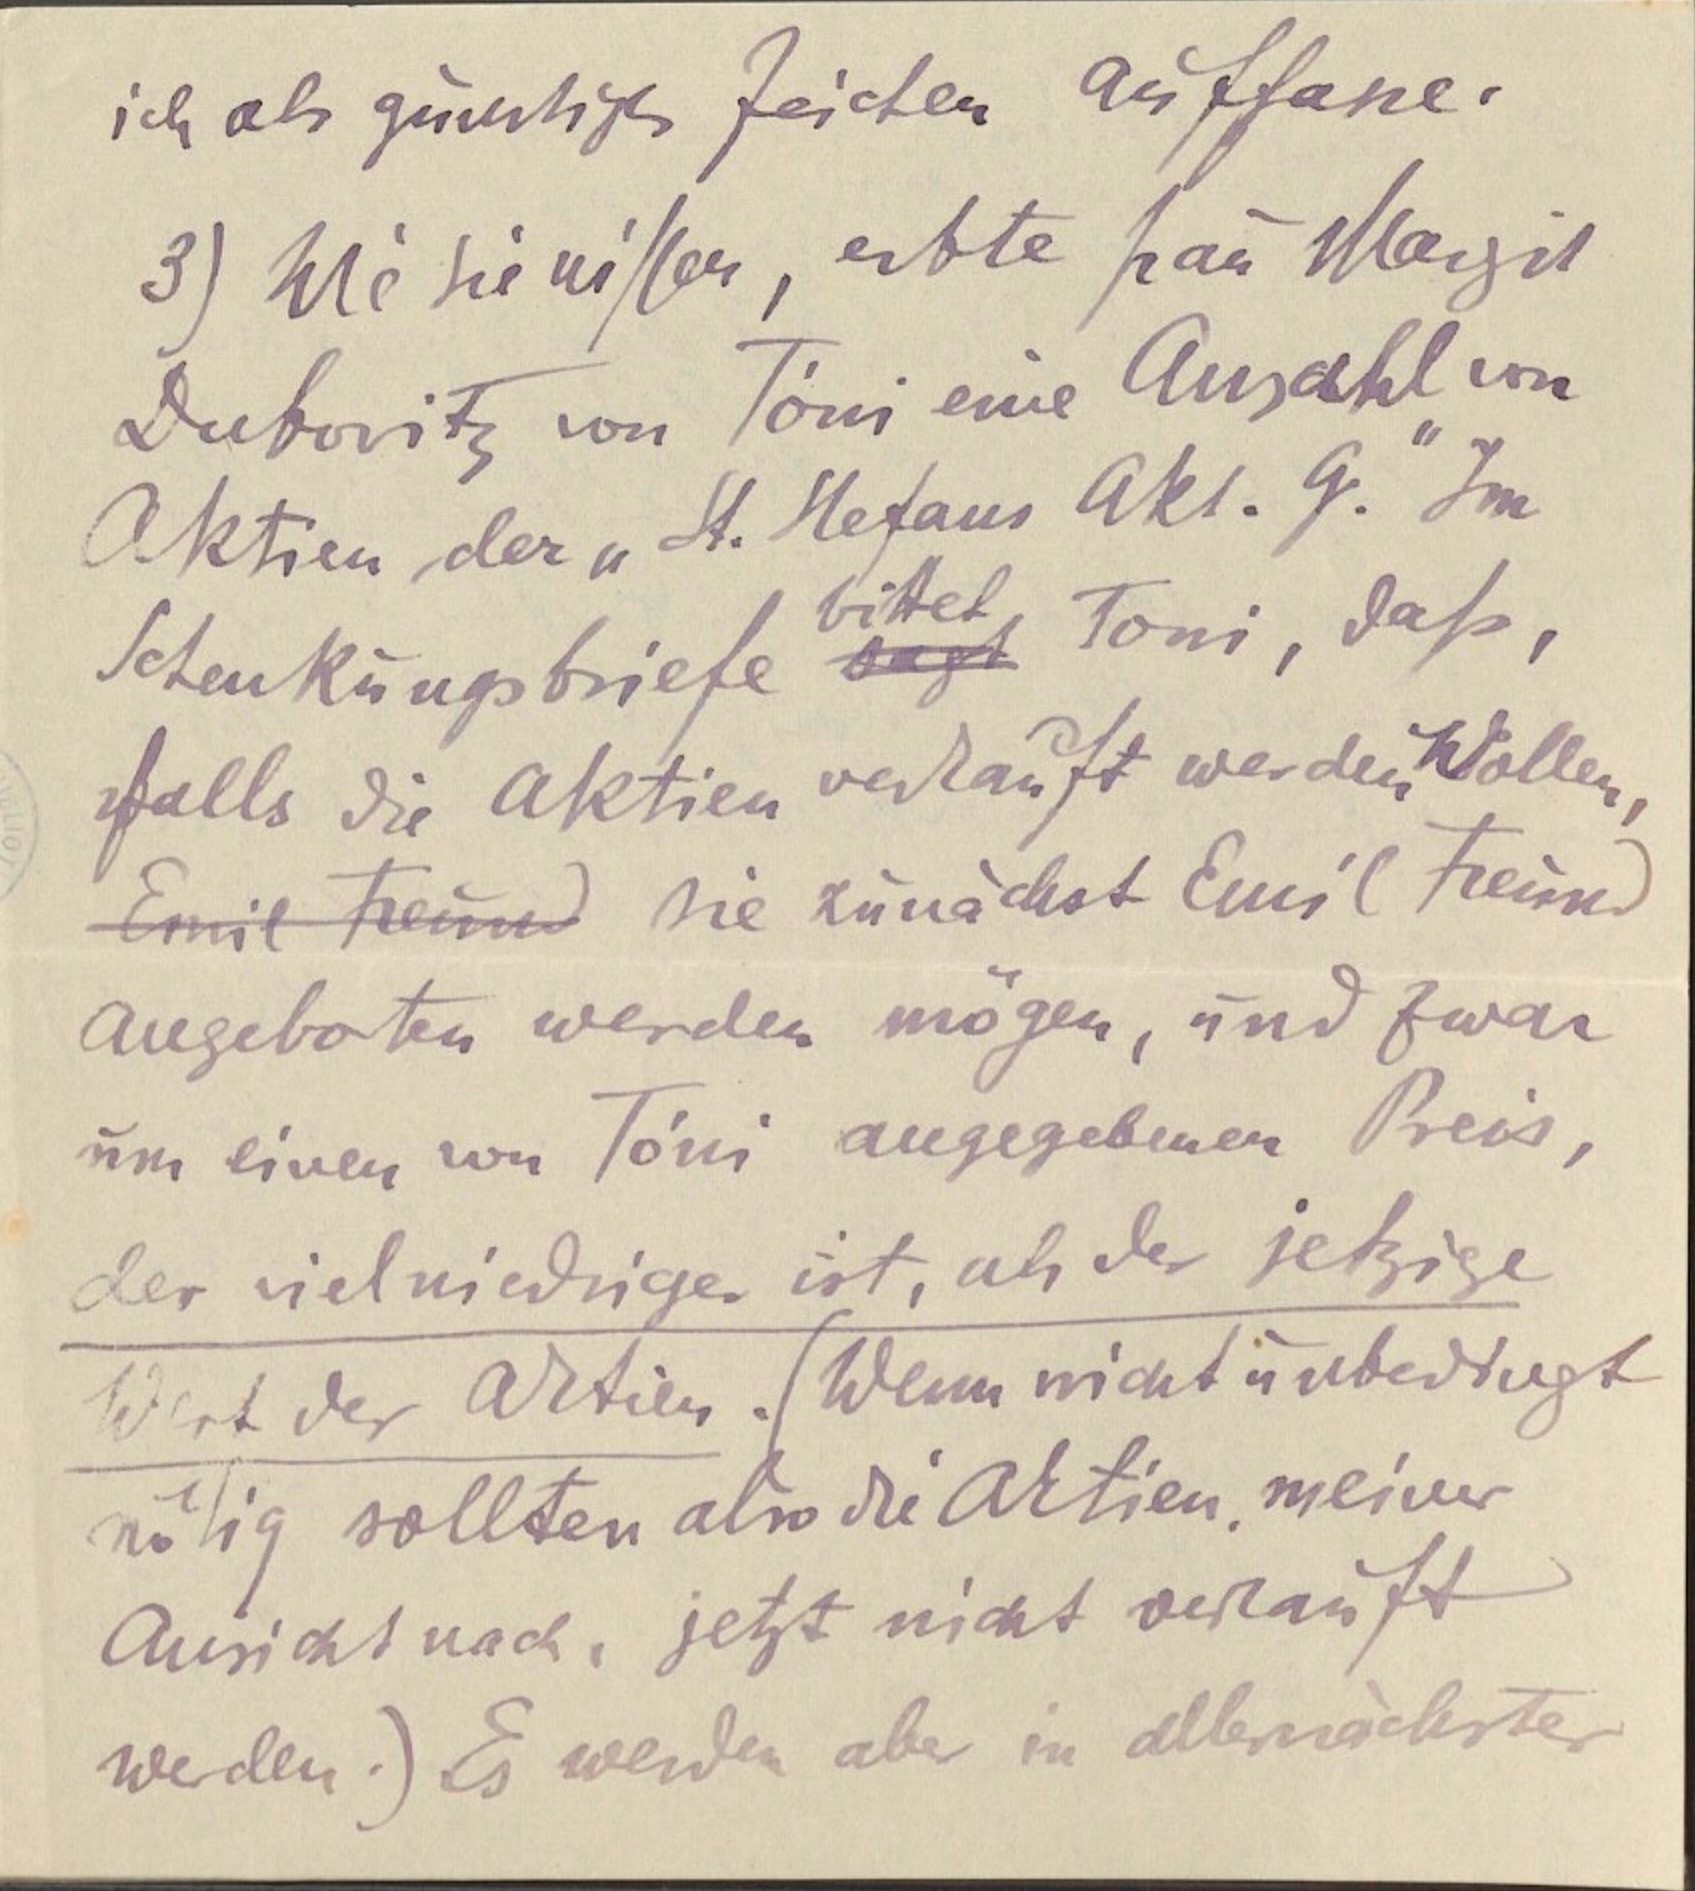 ich als günstiges Zeichen auffasse.
3) Wie Sie wissen, erbte Frau Margit
Dubovitz von Tóni eine Anzahl von
Aktien der „St. Stefans Akt. G." Im
Schenkungsbriefe ~~sagt~~ bittet Toni, daß,
falls die Aktien verkauft werden wollen,
~~Emil Freund~~ sie zunächst Emil Freund
angeboten werden mögen, und zwar
um einen von Tóni angegebenen Preis,
der viel niedriger ist, als der jetzige
Wert der Aktien. (Wenn nicht unbedingt
nötig sollten also die Aktien, meiner
Ansicht nach, jetzt nicht verkauft
werden.) Es werden aber in allernächster